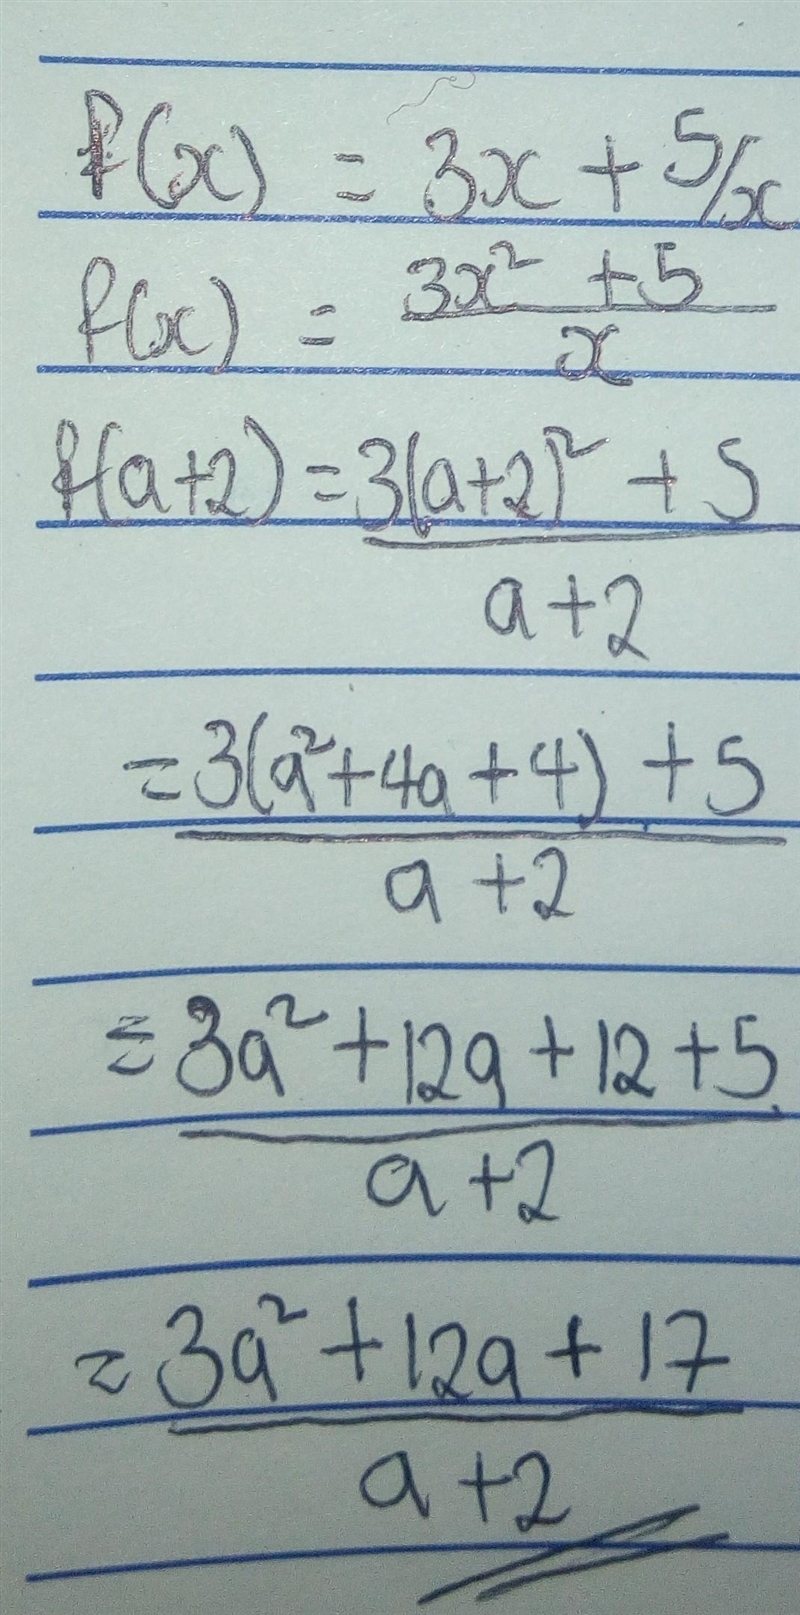 f(x) = 3x + 5/x
f(x) = 3x² + 5
x
f(a+2) = 3(a+2)² + 5
a+2
= 3(a²+4a+4) + 5
a+2
= 3a² + 12a + 12 + 5
a+2
= 3a² + 12a + 17
a+2